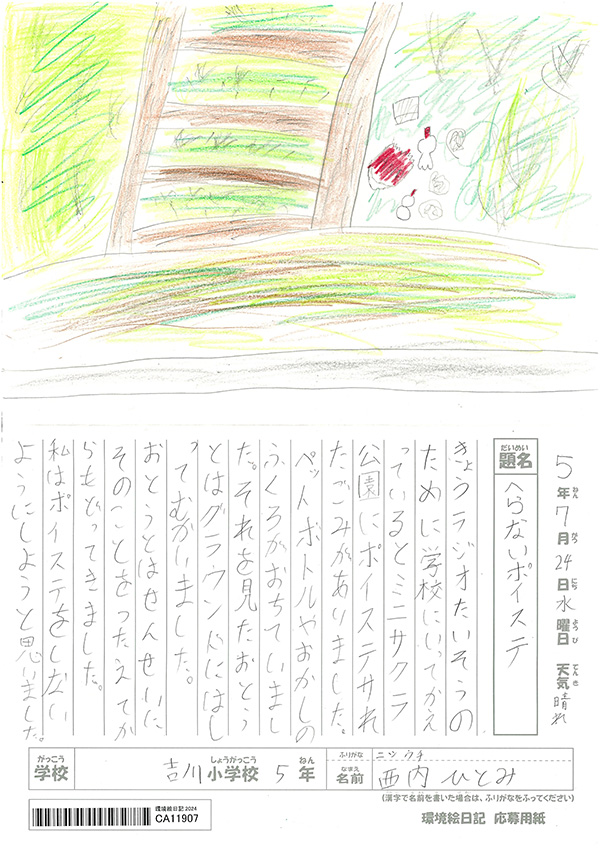 5年ねん7月がつ24日にち水曜日ようび 天気てんき晴れ
題名だいめい へらないポイステ
きょうラジオたいそうの
ために学校にいってかえ
っているとミニサクラ
公園にポイステサれ
たごみがありました。
ペットボトルやおかしの
ふくろがおちていまし
た。それを見たおとう
とはグラウンドにはし
ってむかいました。
おとうとはせんせいに
そのことをつたえてか
らもどってきました。
私はポイステをしない
ようにしようと思いました。
学校がっこう 吉川小学校しょうがっこう 5年ねん
ふりがな ニシウチ
名前なまえ 西内ひとみ
(漢字で名前を書いた場合は、ふりがなをふってください)
環境絵日記 2024
CA11907
環境絵日記 応募用紙